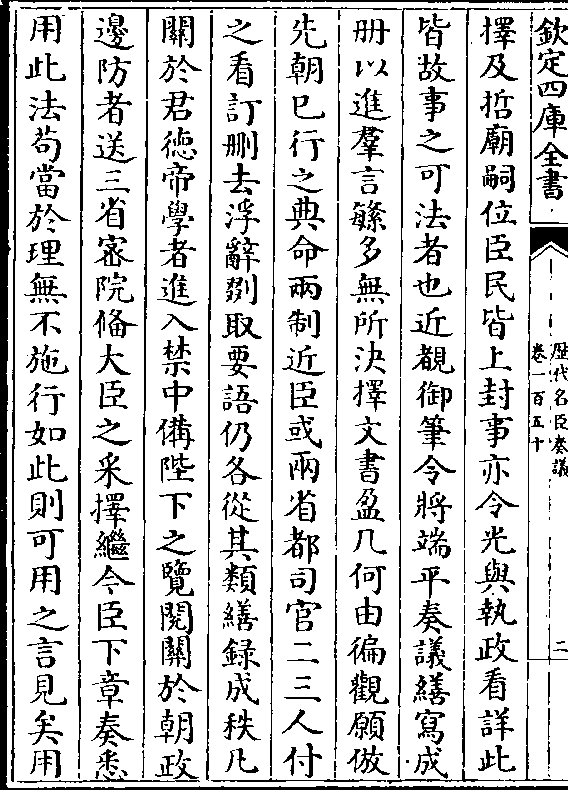 欽定四庫全書
歷代名臣奏議
卷一百五十
二
擇及哲廟嗣位臣民皆上封事亦令光與執政看詳此
皆故事之可法者也近覩御筆令將端平奏議繕寫成
册以進羣言緐多無所決擇文書盈几何由徧觀願倣
先朝已行之典命兩制近臣或兩省都司官二三人付
之看訂删去浮辭剟取要語仍各從其類繕録成秩凡
關於君徳帝學者進入禁中備陛下之覽閲關於朝政
邊防者送三省宻院備大臣之采擇繼今臣下章奏悉
用此法苟當於理無不施行如此則可用之言見矣用